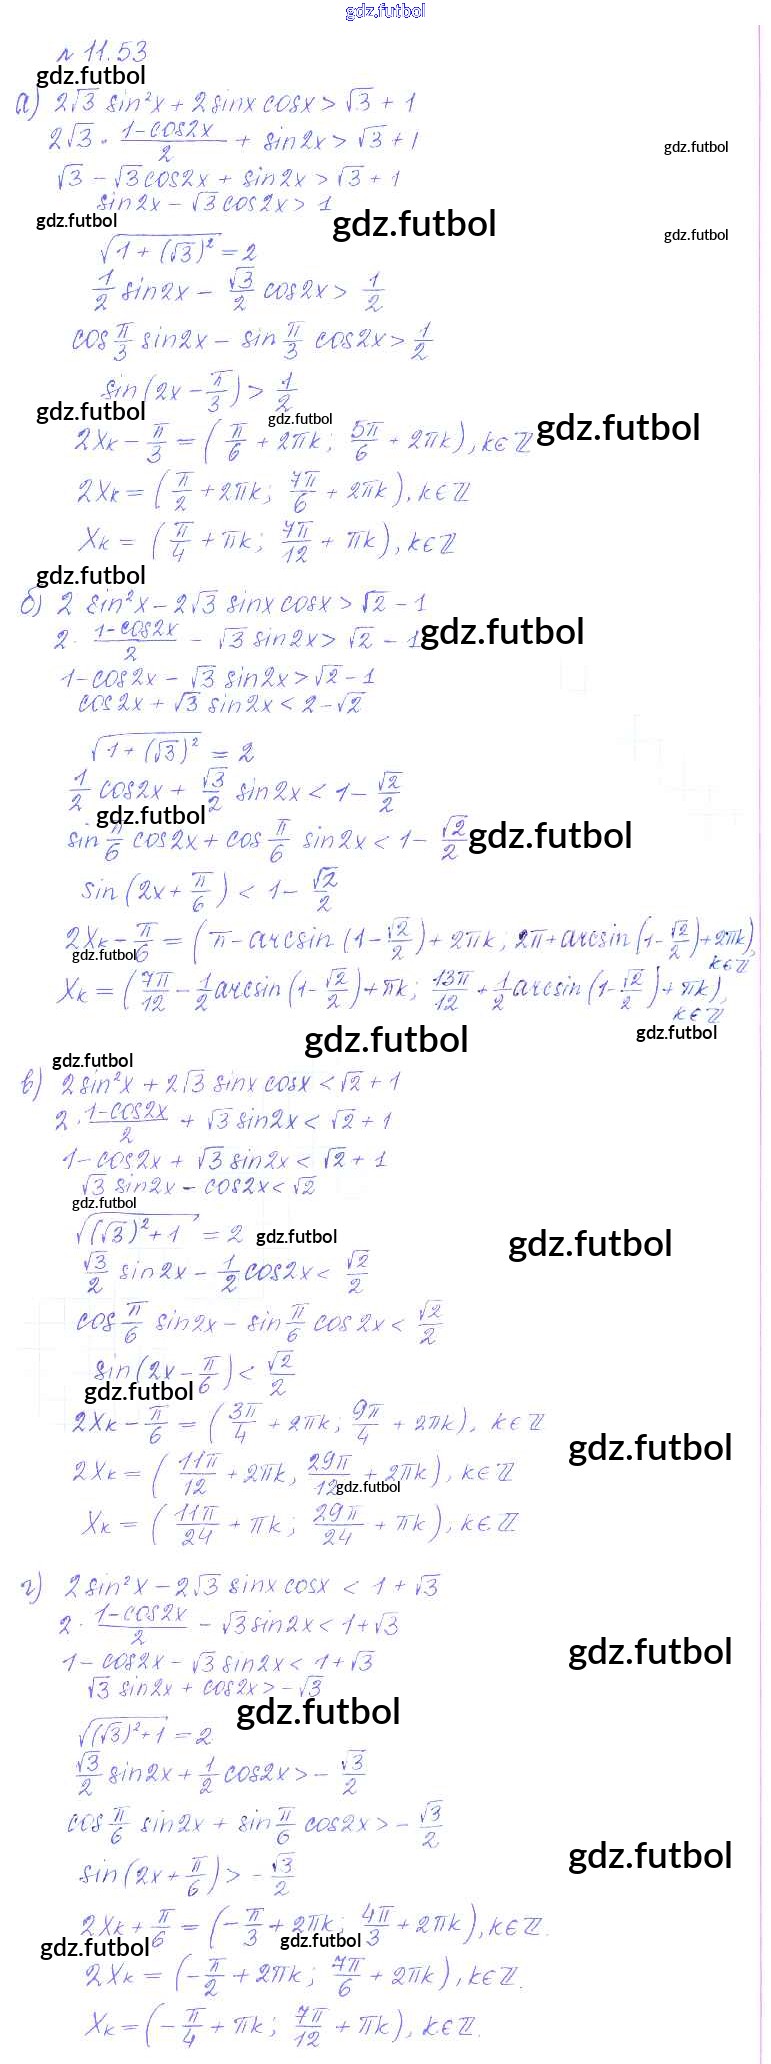 gdz.futbol
№ 11.53
gdz.futbol
а) 2√3 sin²x + 2sinx cosx > √3 + 1
2√3 · (1-cos2x)/2 + sin2x > √3 + 1
gdz.futbol
√3 - √3cos2x + sin2x > √3 + 1
sin2x - √3cos2x > 1
gdz.futbol
gdz.futbol
gdz.futbol
√(1 + (√3)²) = 2
1/2 sin2x - √3/2 cos2x > 1/2
cos π/3 sin2x - sin π/3 cos2x > 1/2
sin(2x - π/3) > 1/2
gdz.futbol
gdz.futbol
gdz.futbol
2Xₖ - π/3 = (π/6 + 2πk; 5π/6 + 2πk), k∈ℤ
2Xₖ = (π/2 + 2πk; 7π/6 + 2πk), k∈ℤ
Xₖ = (π/4 + πk; 7π/12 + πk), k∈ℤ
gdz.futbol
б) 2 sin²x - 2√3 sinx cosx > √2 - 1
2 · (1-cos2x)/2 - √3 sin2x > √2 - 1
gdz.futbol
1 - cos2x - √3 sin2x > √2 - 1
cos2x + √3 sin2x < 2 - √2
√(1 + (√3)²) = 2
1/2 cos2x + √3/2 sin2x < 1 - √2/2
gdz.futbol
sin π/6 cos2x + cos π/6 sin2x < 1 - √2/2
gdz.futbol
sin(2x + π/6) < 1 - √2/2
2Xₖ - π/6 = (π - arcsin(1 - √2/2) + 2πk; 2π + arcsin(1 - √2/2) + 2πk), k∈ℤ
gdz.futbol
Xₖ = (7π/12 - 1/2 arcsin(1 - √2/2) + πk; 13π/12 + 1/2 arcsin(1 - √2/2) + πk), k∈ℤ
gdz.futbol
gdz.futbol
gdz.futbol
в) 2sin²x + 2√3 sinx cosx < √2 + 1
2 · (1-cos2x)/2 + √3 sin2x < √2 + 1
1 - cos2x + √3 sin2x < √2 + 1
√3 sin2x - cos2x < √2
gdz.futbol
√((√3)² + 1) = 2
gdz.futbol
gdz.futbol
√3/2 sin2x - 1/2 cos2x < √2/2
cos π/6 sin2x - sin π/6 cos2x < √2/2
sin(2x - π/6) < √2/2
gdz.futbol
2Xₖ - π/6 = (3π/4 + 2πk; 9π/4 + 2πk), k∈ℤ
gdz.futbol
2Xₖ = (11π/12 + 2πk, 29π/12 + 2πk), k∈ℤ
gdz.futbol
Xₖ = (11π/24 + πk; 29π/24 + πk), k∈ℤ
г) 2sin²x - 2√3 sinx cosx < 1 + √3
2 · (1-cos2x)/2 - √3 sin2x < 1 + √3
1 - cos2x - √3 sin2x < 1 + √3
gdz.futbol
√3 sin2x + cos2x > -√3
gdz.futbol
√((√3)² + 1) = 2
√3/2 sin2x + 1/2 cos2x > - √3/2
cos π/6 sin2x + sin π/6 cos2x > - √3/2
gdz.futbol
sin(2x + π/6) > - √3/2
2Xₖ + π/6 = (-π/3 + 2πk; 4π/3 + 2πk), k∈ℤ.
gdz.futbol
gdz.futbol
2Xₖ = (-π/2 + 2πk; 7π/6 + 2πk), k∈ℤ.
Xₖ = (-π/4 + πk; 7π/12 + πk), k∈ℤ.